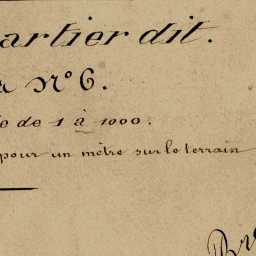 artier dit.
N° 6.
de 1 à 1000.
pour un mètre sur le terrain